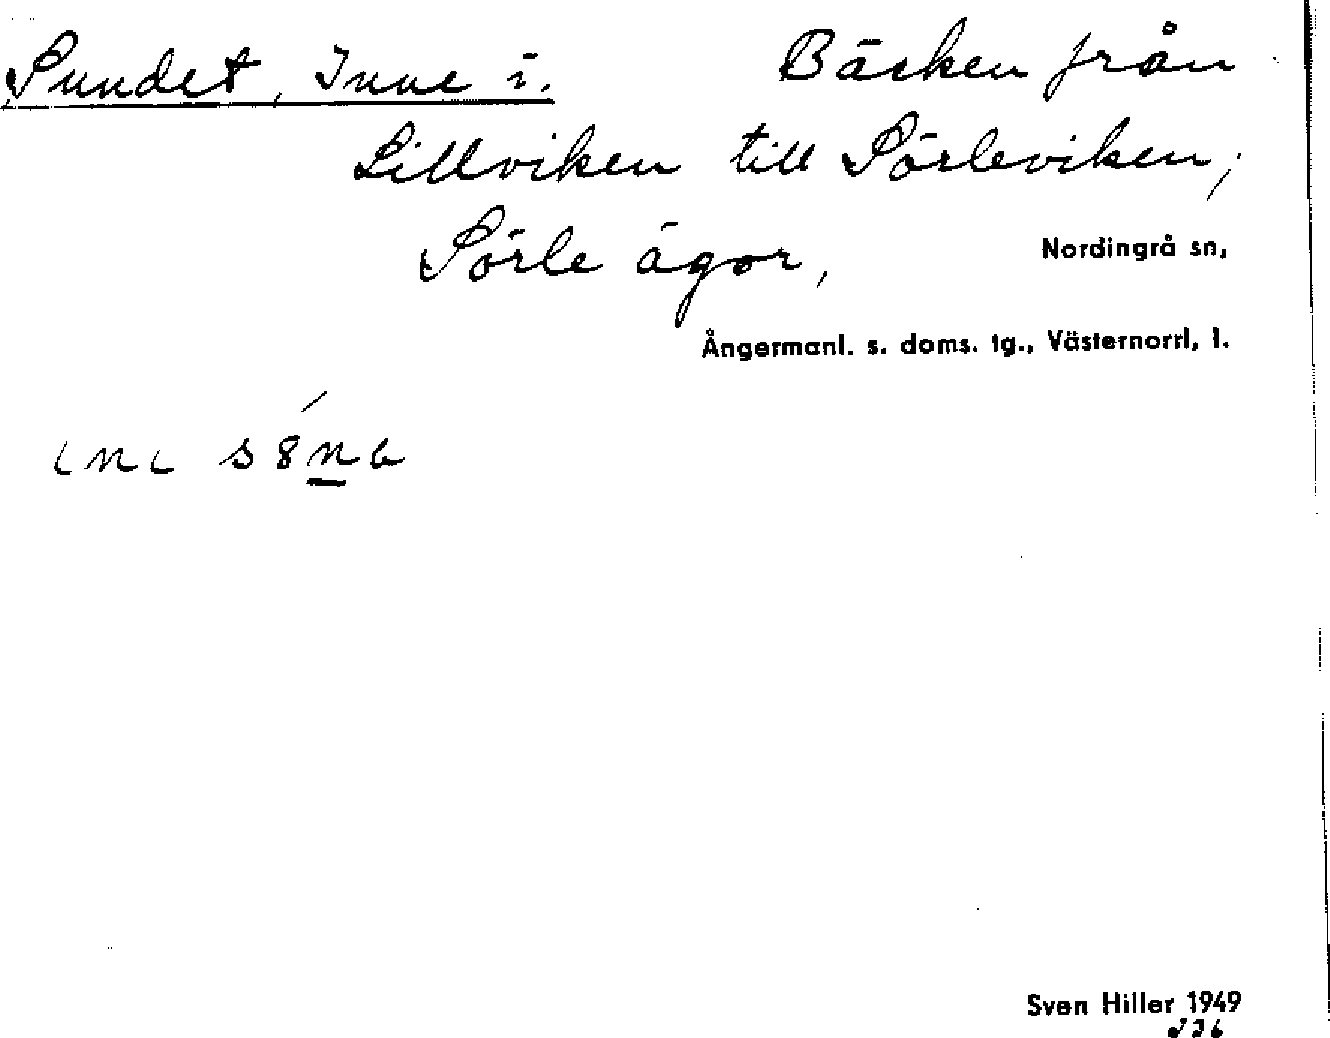 Sundet, Inne i. Bäcken från
Lillviken till Sörleviken,
Sörle ägor, Nordingrå sn,
Ångermanl. s. doms. tg., Västernorrl, l.
Sven Hiller 1949